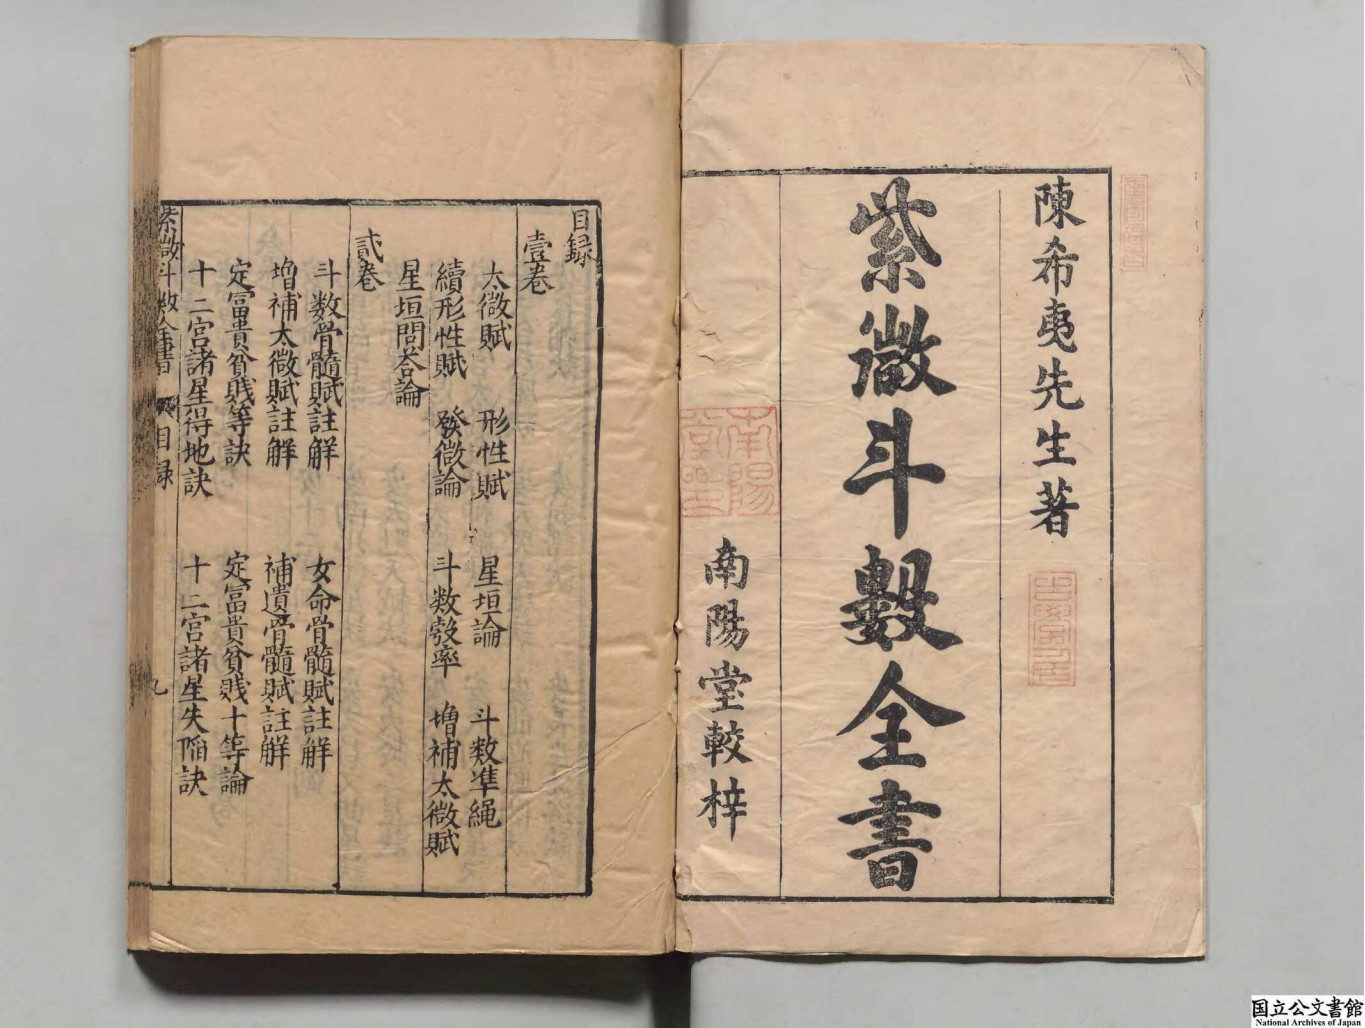 陳希夷先生著
紫微斗數全書
南陽堂較梓
南陽
目録
壹卷
太微賦 形性賦 星垣論 斗数凖縄
續形性賦 發微論 斗数彀率 増補太微賦
星垣問荅論
貳卷
斗数骨髓賦註觧 女命骨髓賦註觧
増補太微賦註觧 補遺骨髓賦註觧
定富貴貧賎等訣 定富貴貧賎十等論
十二宮諸星得地訣 十二宮諸星失陥訣
紫微斗数全書 目録 九
国立公文書館
National Archives of Japan